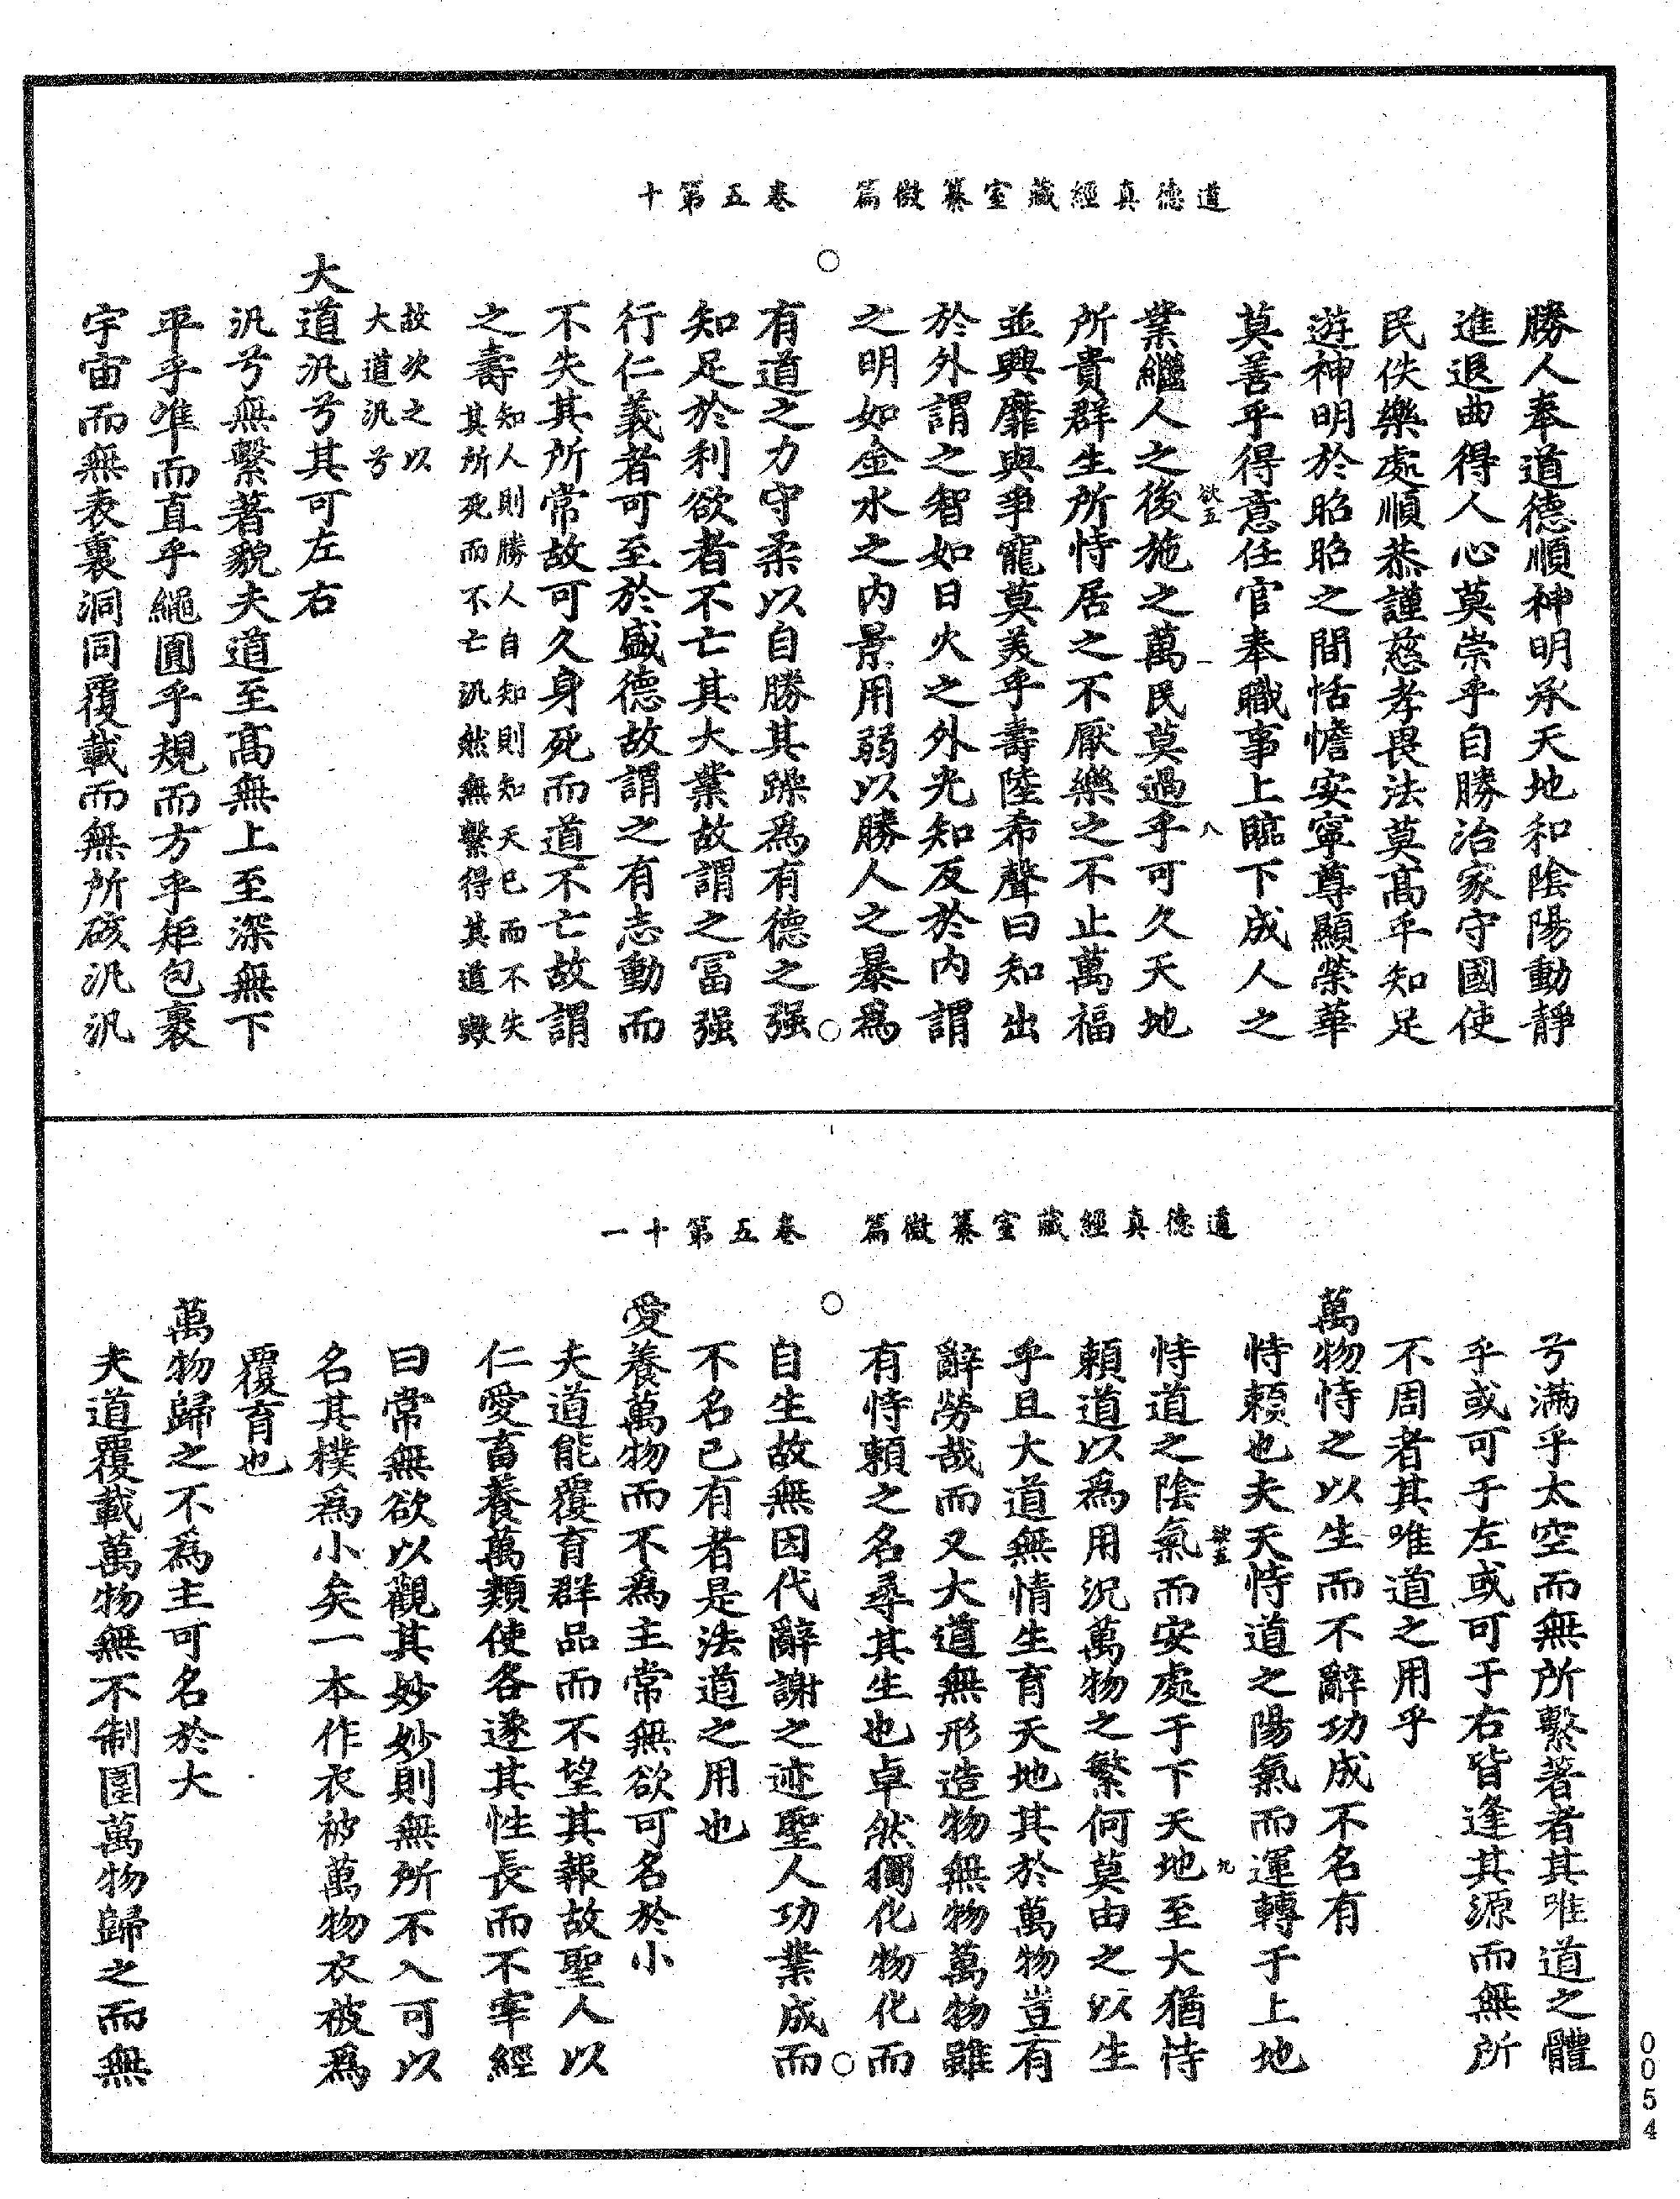 道德真經藏室纂微篇　卷五第十
勝人奉道德順神明承天地和陰陽動靜
進退曲得人心莫崇乎自勝治家守國使
民佚樂處順恭謹慈孝畏法莫高乎知足
遊神明於昭昭之間恬憺安寧尊顯榮華
莫善乎得意任官奉職事上臨下成人之
欲五　一　八
業繼人之後施之萬民莫過乎可久天地
所貴群生所恃居之不厭樂之不止萬福
並興靡與爭寵莫美乎壽陸希聲曰知出
於外謂之智如日火之外光知反於內謂
之明如金水之內景用弱以勝人之暴爲
有道之力守柔以自勝其躁爲有德之强
知足於利欲者不亡其大業故謂之冨强
行仁義者可至於盛德故謂之有志動而
不失其所常故可久身死而道不亡故謂
之壽知人則勝人自知則知天已而不失
其所死而不亡汎然無繫得其道歟
故次之以
大道汎兮
大道汎兮其可左右
汎兮無繫著貌夫道至高無上至深無下
平乎准而直乎繩圓乎規而方乎矩包裹
宇宙而無表裏洞同覆載而無所硋汎汎
道德真經藏室纂微篇　卷五第十一
兮滿乎太空而無所繫著者其唯道之體
乎或可于左或可于右皆逢其源而無所
不周者其唯道之用乎
萬物恃之以生而不辭功成不名有
恃頼也夫天恃道之陽氣而運轉于上地
欲五　九
恃道之陰氣而安處于下天地至大猶恃
頼道以爲用況萬物之繁何莫由之以生
乎且大道無情生育天地其於萬物豈有
辭勞哉而又大道無形造物無物萬物雖
有恃頼之名尋其生也卓然獨化物化而
自生故無因代辭謝之迹聖人功業成而
不名已有者是法道之用也
愛養萬物而不爲主常無欲可名於小
夫道能覆育群品而不望其報故聖人以
仁愛畜養萬類使各遂其性長而不宰經
曰常無欲以觀其妙妙則無所不入可以
名其樸爲小矣一本作衣被萬物衣被爲
覆育也
萬物歸之不爲主可名於大
夫道覆載萬物無不制圍萬物歸之而無
0054